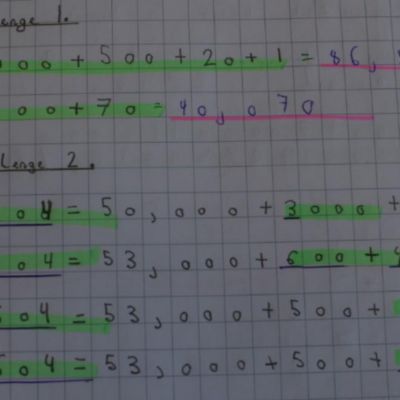 lenge 1.
000 + 500 + 20 + 1 = 86,
00 + 70 = 40,070
lenge 2.
04 = 50,000 + 3000 +
04 = 53,000 + 600 + 4
504 = 53,000 + 500 +
504 = 53,000 + 500 +